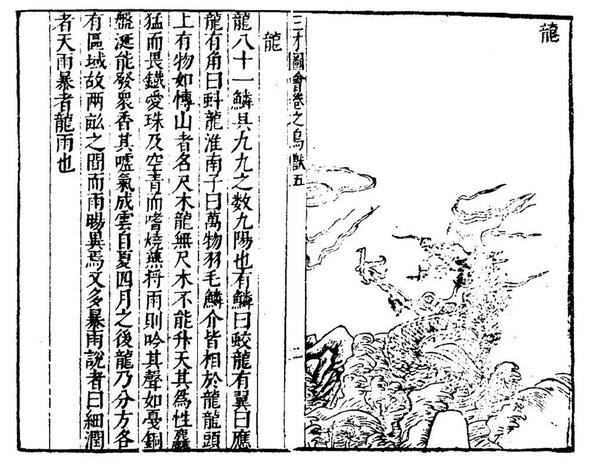 龍
三才圖會卷之鳥獸五
一
龍
龍八十一鱗具九九之數九陽也有鱗曰蛟龍有翼曰應
龍有角曰蚪龍淮南子曰萬物羽毛鱗介皆祖於龍龍頭
上有物如博山者名尺木龍無尺木不能升天其為性麤
猛而畏鐵愛珠及空青而嗜燒燕將雨則吟其聲如戛銅
盤涎能發衆香其噓氣成雲自夏四月之後龍乃分方各
有區域故兩畝之間而雨暘異焉又多暴雨說者曰細潤
者天雨暴者龍雨也